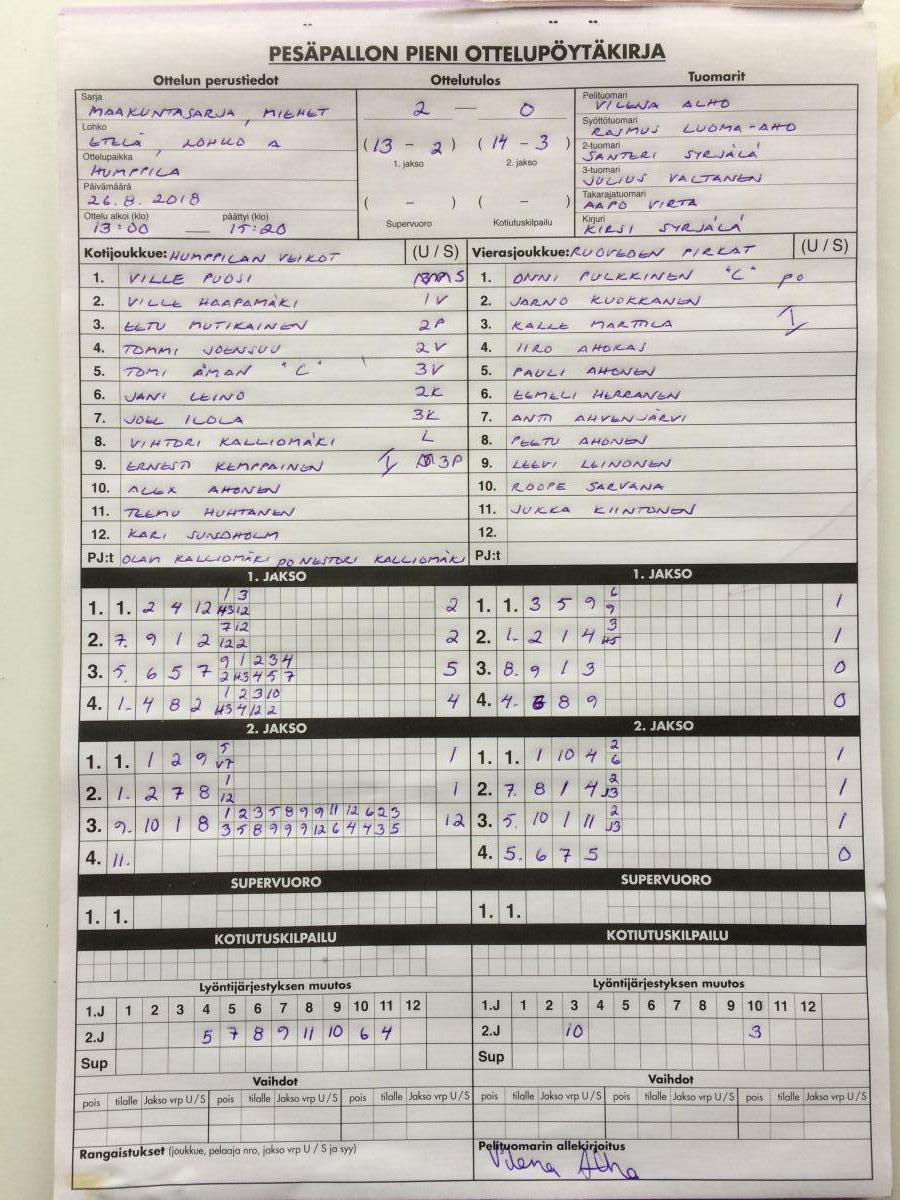 PESÄPALLON PIENI OTTELUPÖYTÄKIRJA
Ottelun perustiedot Ottelutulos Tuomarit
Sarja
MAAKUNTASARJA, MIEHET
Lohko
ETELÄ, LOHKO A
Ottelupaikka
HUMPPILA
Päivämäärä
26.8.2018
Ottelu alkoi (klo) päättyi (klo)
13:00 — 15:20
2 — 0
(13 - 2) (14 - 3)
1. jakso 2. jakso
( - ) ( - )
Supervuoro Kotiutuskilpailu
Pelituomari
VILENA ALHO
Syöttötuomari
RASMUS LUOMA-AHO
2-tuomari
SANTERI SYRJÄLÄ
3-tuomari
JULIUS VALTANEN
Takarajatuomari
AAPO VIRTA
Kirjuri
KIRSI SYRJÄLÄ
Kotijoukkue: HUMPPILAN VEIKOT (U / S)
1. VILLE PUOSI S
2. VILLE HAAPAMÄKI 1V
3. EETU MUTIKAINEN 2P
4. TOMMI JOENSUU 2V
5. TOMI ÅMAN "C" 3V
6. JANI LEINO 2K
7. JOEL ILOLA 3K
8. VIHTORI KALLIOMÄKI L
9. ERNESTI KEMPPAINEN 3P
10. ALEX AHONEN
11. TEEMU HUHTANEN
12. KARI SUNDHOLM
PJ:t OLAVI KALLIOMÄKI PO NESTORI KALLIOMÄKI
Vierasjoukkue: RUOVEDEN PIRKAT (U / S)
1. ONNI PULKKINEN "C" PO
2. JARNO KUOKKANEN
3. KALLE MARTTILA
4. IIRO AHOKAS
5. PAULI AHONEN
6. EEMELI HERRANEN
7. ANTTI AHVENJÄRVI
8. PEETU AHONEN
9. LEEVI LEINONEN
10. ROOPE SARVANA
11. JUKKA KIINTONEN
12.
PJ:t
1. JAKSO
1 3
1. 1. 2 4 12 H3 12 2
7 12
2. 7. 9 1 2 12 2 2
9 1 2 3 4
3. 5. 6 5 7 2 H3 4 5 7 5
1 2 3 10
4. 1. 4 8 2 H3 4 12 2 4
1. JAKSO
6
1. 1. 3 5 9 9 1
3
2. 1. 2 1 4 H5 1
3. 8. 9 1 3 0
4. 4. 8 9 0
2. JAKSO
5
1. 1. 1 2 9 V7 1
1
2. 1. 2 7 8 12 1
1 2 3 5 8 9 9 11 12 6 2 3
3. 9. 10 1 8 3 5 8 9 9 9 12 6 4 4 3 5 12
4. 11.
2. JAKSO
2
1. 1. 1 10 4 6 1
2
2. 7. 8 1 4 J3 1
2
3. 5. 10 1 11 J3 1
4. 5. 6 7 5 0
SUPERVUORO SUPERVUORO
1. 1. 1. 1.
KOTIUTUSKILPAILU KOTIUTUSKILPAILU
Lyöntijärjestyksen muutos
1.J 1 2 3 4 5 6 7 8 9 10 11 12
2.J 5 7 8 9 11 10 6 4
Sup
Lyöntijärjestyksen muutos
1.J 1 2 3 4 5 6 7 8 9 10 11 12
2.J 10 3
Sup
Vaihdot Vaihdot
pois tilalle Jakso vrp U/S pois tilalle Jakso vrp U/S pois tilalle Jakso vrp U/S pois tilalle Jakso vrp U/S pois tilalle Jakso vrp U/S pois tilalle Jakso vrp U/S
Rangaistukset (joukkue, pelaaja nro, jakso vrp U / S ja syy)
Pelituomarin allekirjoitus
Vilena Alho